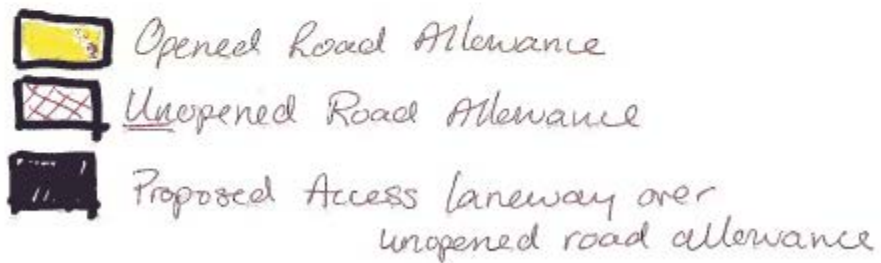 Opened Road Allowance
Unopened Road Allowance
Proposed Access laneway over
unopened road allowance